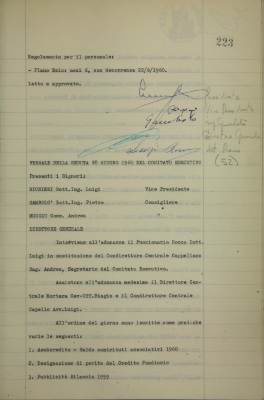 223
Regolamento per il personale:
- Piano Ezio: mesi 6, con decorrenza 22/6/1960.
Letto e approvato.
VERBALE DELLA SEDUTA 28 GIUGNO 1960 DEL COMITATO ESECUTIVO
Presenti i Signori:
Dott.Ing. Luigi Vice Presidente
Dott.Ing. Pietro Consigliere
Comm. Andrea "
DIRETTORE GENERALE
Interviene all'adunanza il Funzionario Rocco Dott.
Luigi in sostituzione del Condirettore Centrale Cappellaro
Rag. Andrea, Segretario del Comitato Esecutivo.
Assistono all'adunanza medesima il Direttore Cen-
trale Mortara Cav.Uff.Biagio e il Condirettore Centrale
Capello Avv.Luigi.
All'ordine del giorno sono iscritte some pratiche
varie le seguenti:
1. Assocredito - Saldo contributi associativi 1960
2. Designazione di perito del Credito Fondiario
3. Pubblicità Bilancio 1959